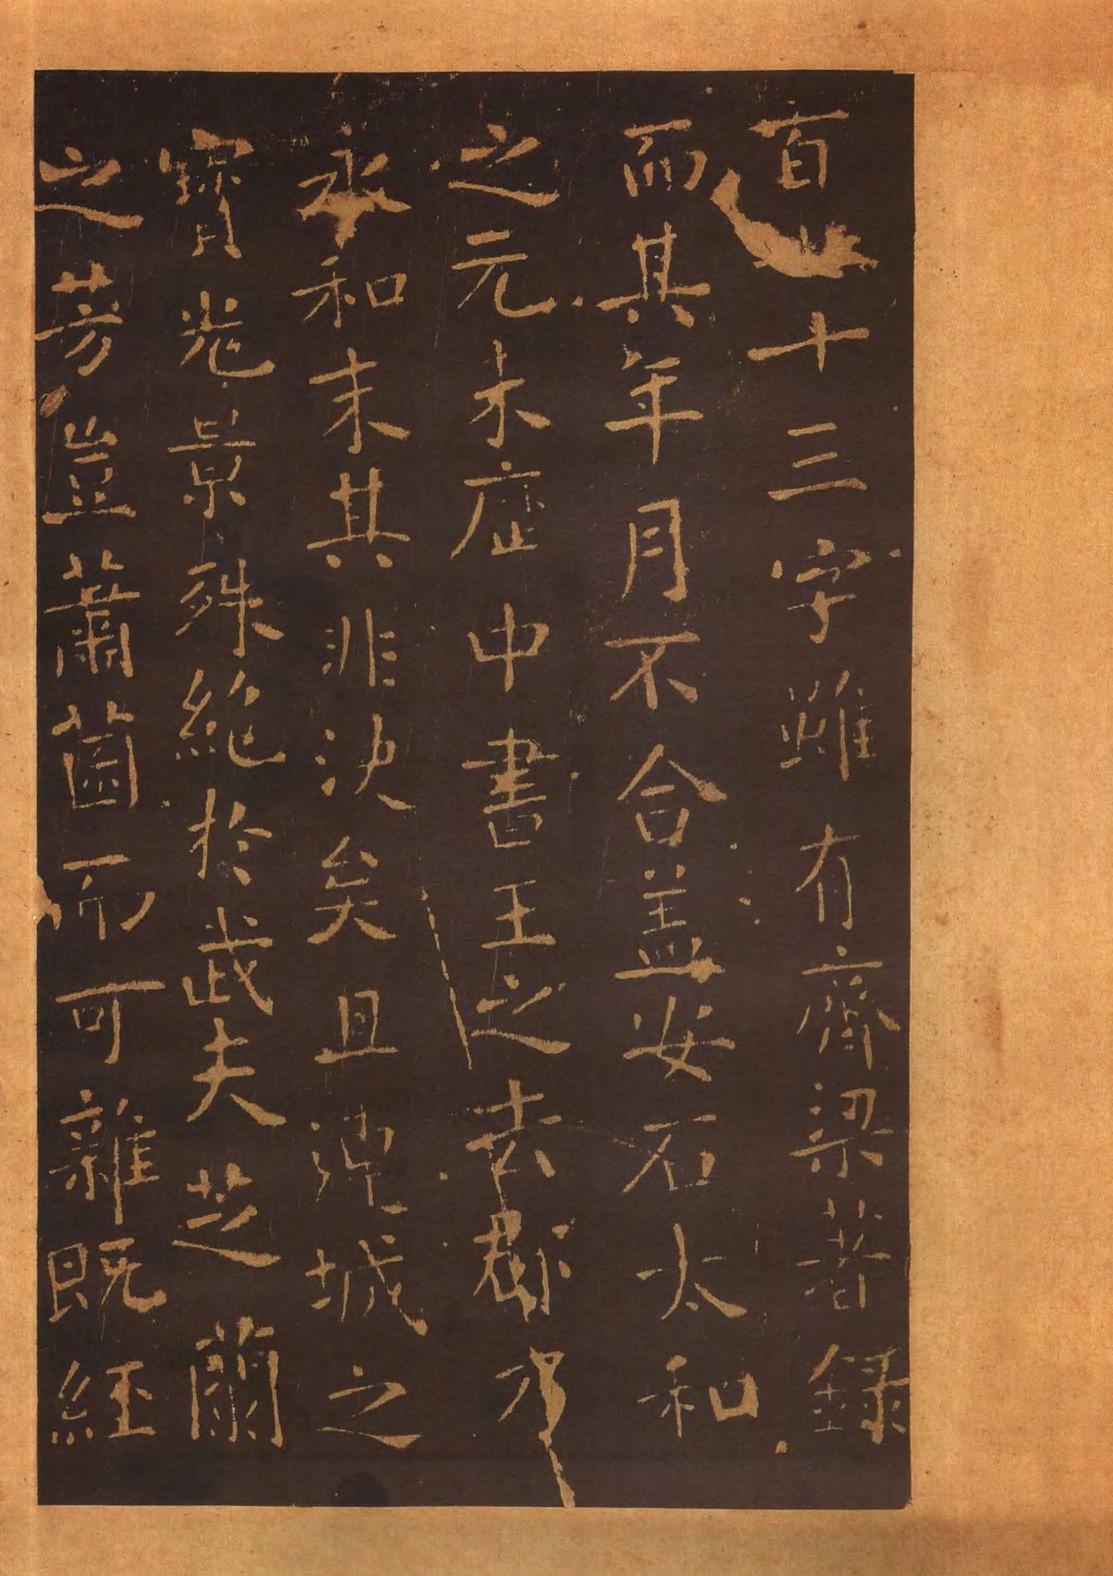 百十三字雖有齊梁著錄
而其年月不合盖安石太和
之元未歷中書王之去郡乃
永和末其非決矣且連城之
寶光景殊絶於武夫芝蘭
之芳豈蕭而可雜既經